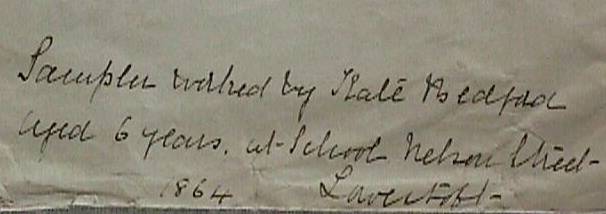 Sampler worked by Kate Bedford
aged 6 years. at School Nelson Street
1864 Lowestoft